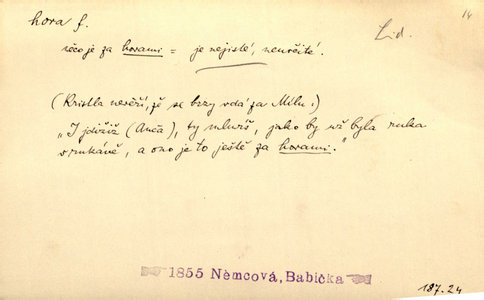 14
hora f.
Lid.
něco je za horami = je nejisté, neurčité.
(Kristla nevěří, že se brzy vdá za Mílu:)
"I jdižiž (Anča), ty mluvíš, jako by už byla ruka
v rukávě, a ono je to ještě za horami."
1855 Němcová, Babička
187.24